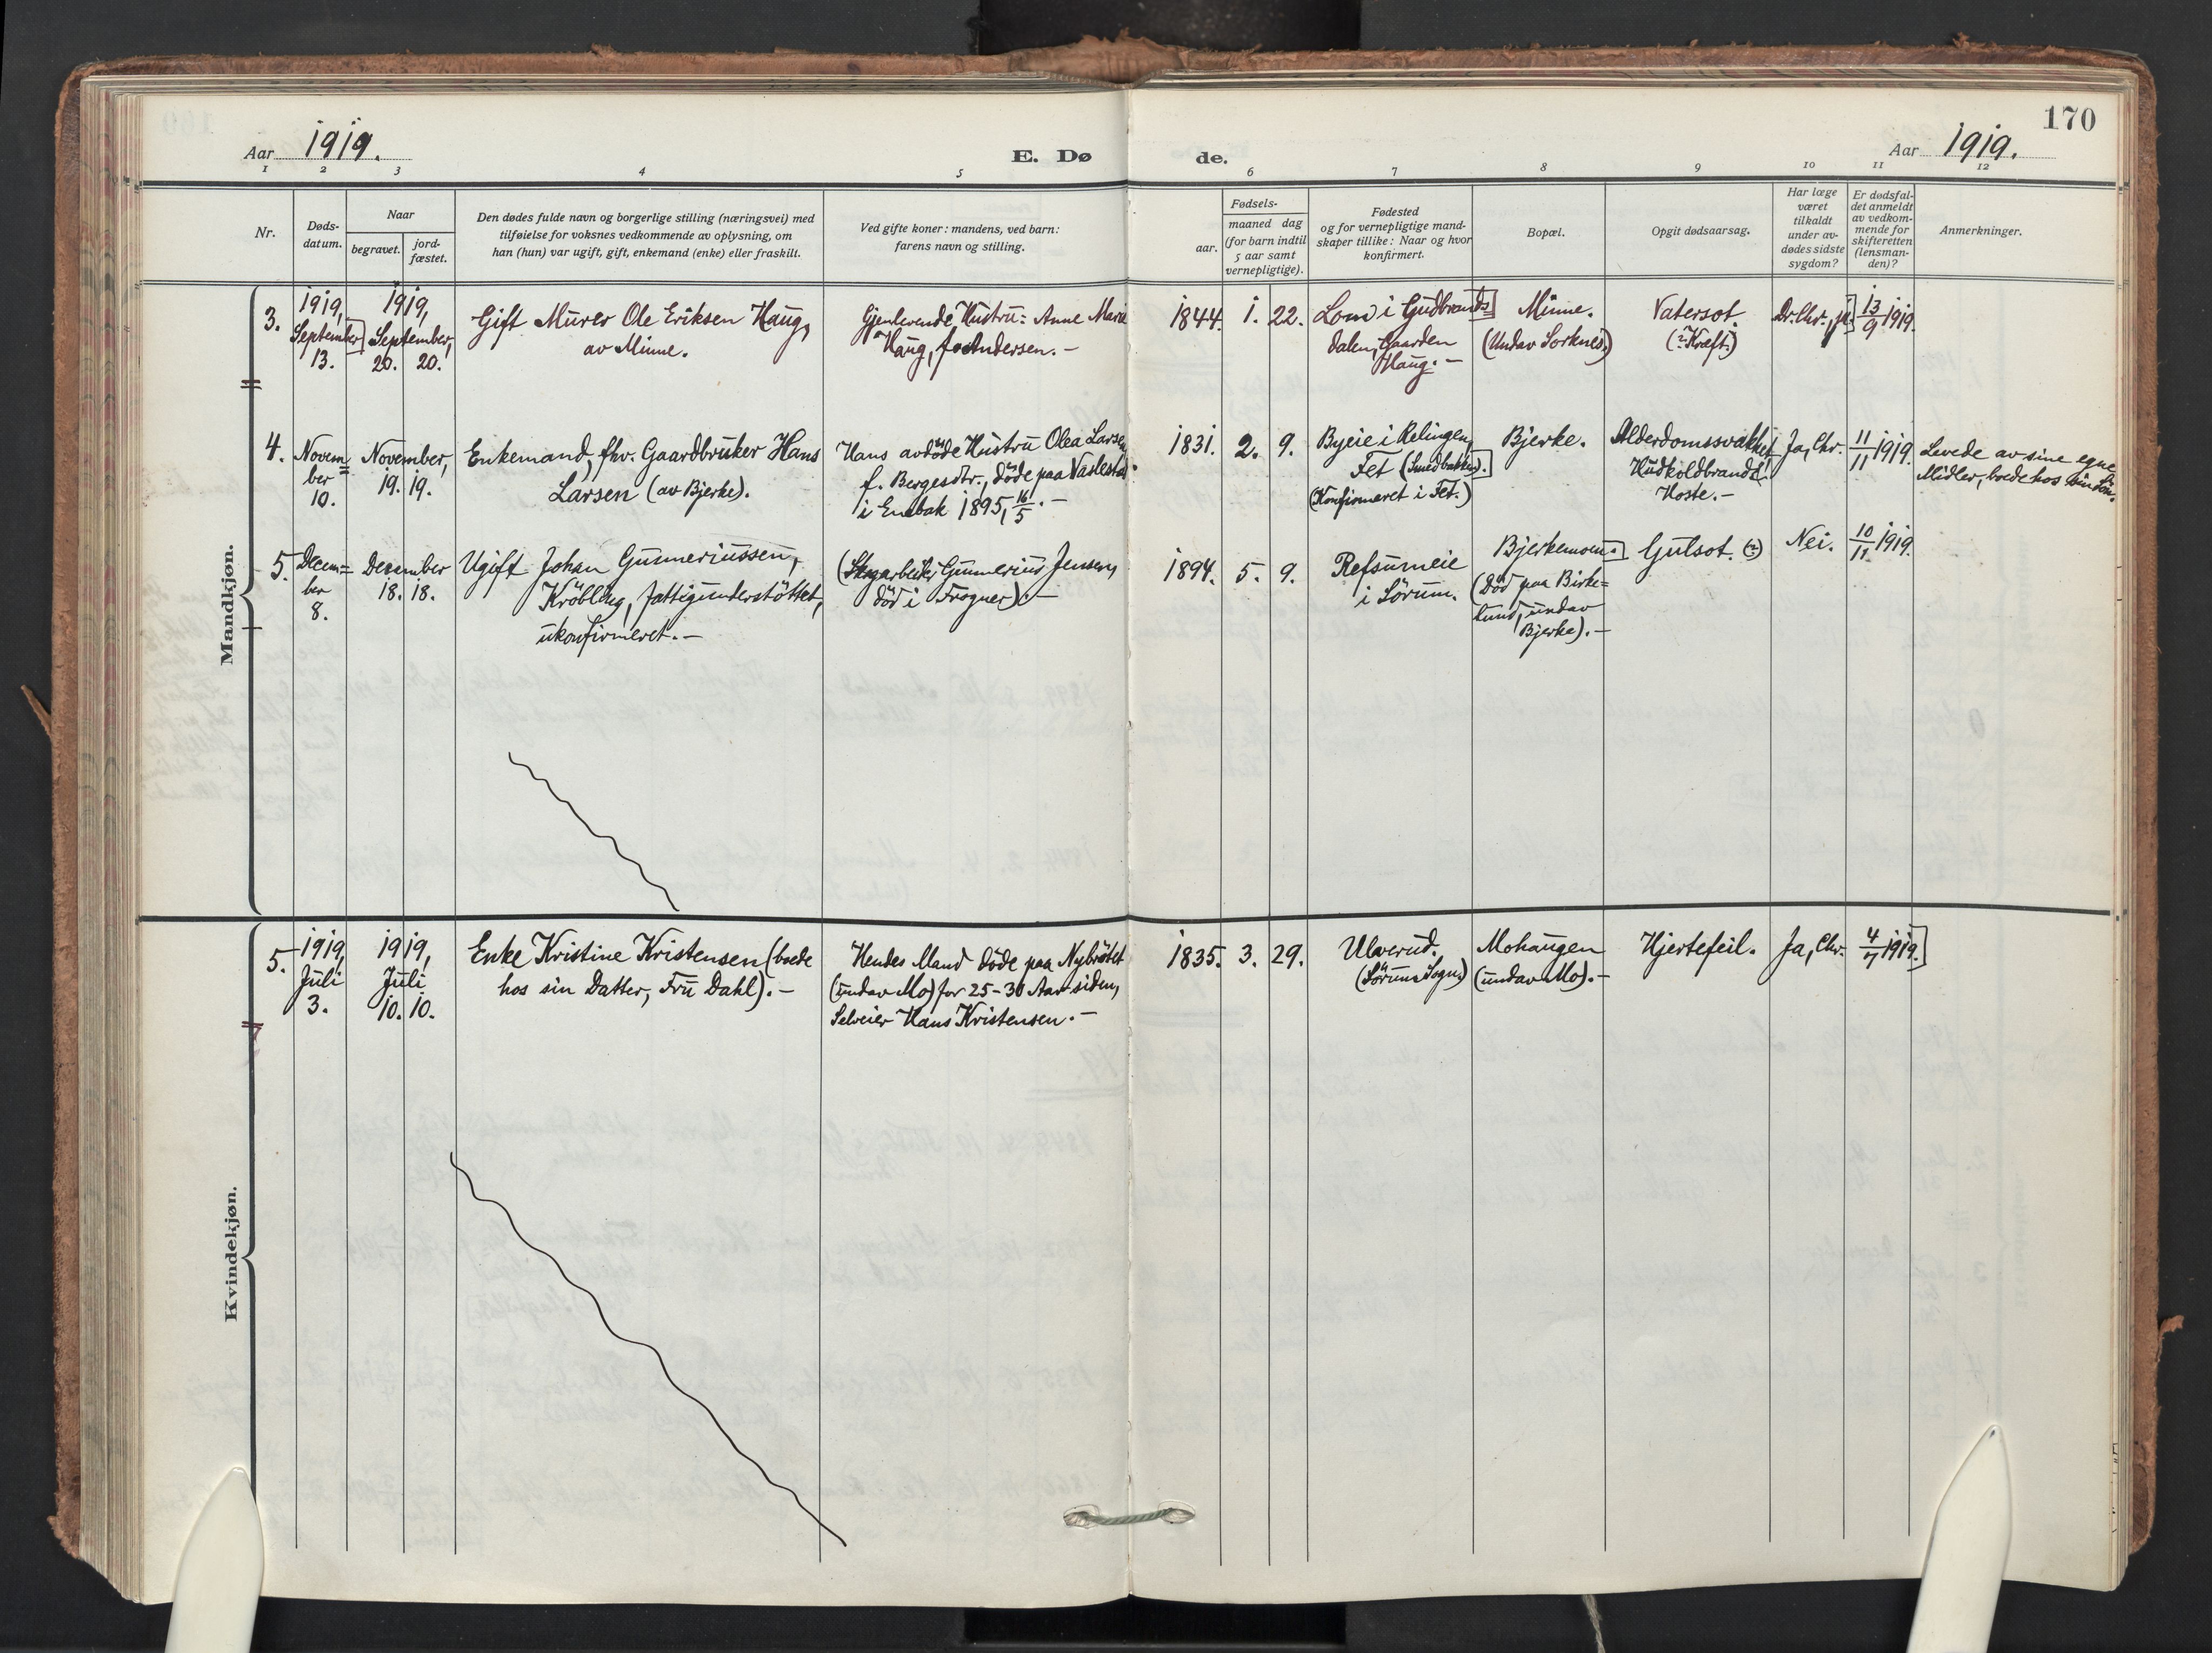 170
Aar 1919.
E. Dø
de.
Aar 1919.
1 2 3 4 5 6 7 8 9 10 11 12
Nr.
Døds-
datum.
Naar
begravet.
jord-
fæstet.
Den dødes fulde navn og borgerlige stilling (næringsvei) med
tilføielse for voksnes vedkommende av oplysning, om
han (hun) var ugift, gift, enkemand (enke) eller fraskilt.
Ved gifte koner: mandens, ved barn:
farens navn og stilling.
Fødsels-
aar.
maaned dag
(for barn indtil
5 aar samt
vernepligtige).
Fødested
og for vernepligtige mand-
skaper tillike: Naar og hvor
konfirmert.
Bopæl.
Opgit dødsaarsag.
Har læge
været
tilkaldt
under av-
dødes sidste
sygdom?
Er dødsfal-
det anmeldt
av vedkom-
mende for
skifteretten
(lensman-
den)?
Anmerkninger.
Mandkjøn.
3.
1919,
September
13.
1919,
September,
20. 20.
Gift Murer Ole Eriksen Haug,
av Minne.
Gjenlevende Hustru: Anne Marie
Haug, f. Andersen.-
1844. 1. 22.
Lom i Gudbrands
dalen, Gaarden
Haug.-
Minne.
(Undav Sorknes)
Vatersot.
(? Kræft.)
Dr. Chr., ja.
13/9 1919.
4.
Novem=
ber
10.
November,
19. 19.
Enkemand, fhv. Gaardbruker Hans
Larsen (av Bjerke).
Hans avdöde Hustru Olea Larsen,
f. Bergesdtr., döde paa Vaslestad
i Enebak 1895, 16/5.-
1831. 2. 9.
Byeie i Relingen,
Fet (Smedbakken).
(Konfirmeret i Fet.)
Bjerke.
Alderdomssvakhet,
Hudkoldbrand,
Hoste.-
Ja, Chr.
11/11 1919.
Levede av sine egne
Midler, boede hos sin Sön.
5.
Decem=
ber
8.
December
18. 18.
Ugift Johan Gunneriussen,
Kröbling, fattigunderstöttet,
ukonfirmeret.-
(Skogarbeider Gunnerius Jensen,
död i Frogner).-
1894. 5. 9.
Refsumeie
i Sörum.
Bjerkemoen.
(Död paa Birke=
lund, undav
Bjerke).-
Gulsot. (?)
Nei.
10/12 1919.
Kvindekjøn.
5.
1919,
Juli
3.
1919,
Juli
10. 10.
Enke Kristine Kristensen (boede
hos sin Datter, Fru Dahl).-
Hendes Mand döde paa Nybrötet
(undav Mo) for 25-30 Aar siden,
Selveier Hans Kristensen.-
1835. 3. 29.
Ulverud.
(Sörums Sogn)
Mohaugen
(undav Mo).-
Hjertefeil.
Ja, Chr.
4/7 1919.